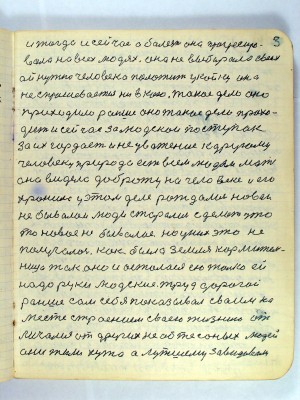 3
и тогда и сейчас а болезнь она прогресиро-
вала на всех людях. она не выбирала своих
ей нужно человека положить у койку она
не спрашивается ни в кого, такое дело оно
приходило раньше оно такое дело прихо-
дит и сейчас за людской поступак
за их гардасть и не уважение к другому
человеку природа есть всем людям мать
она видела доброту на человеке и его
хранило у этом деле рождали новае
не бывалае люди старалися сделать что
то новае не бывалае, но у них это не
получалось. как была земля кормител-
ница так оно и осталася ею только ей
надо руки людские труд дорогой
раньше сам себя показывал сваим на
месте строением сваею жизнию от-
личался от других не обтесоных людей
они жили хужа а лутшему завидовали